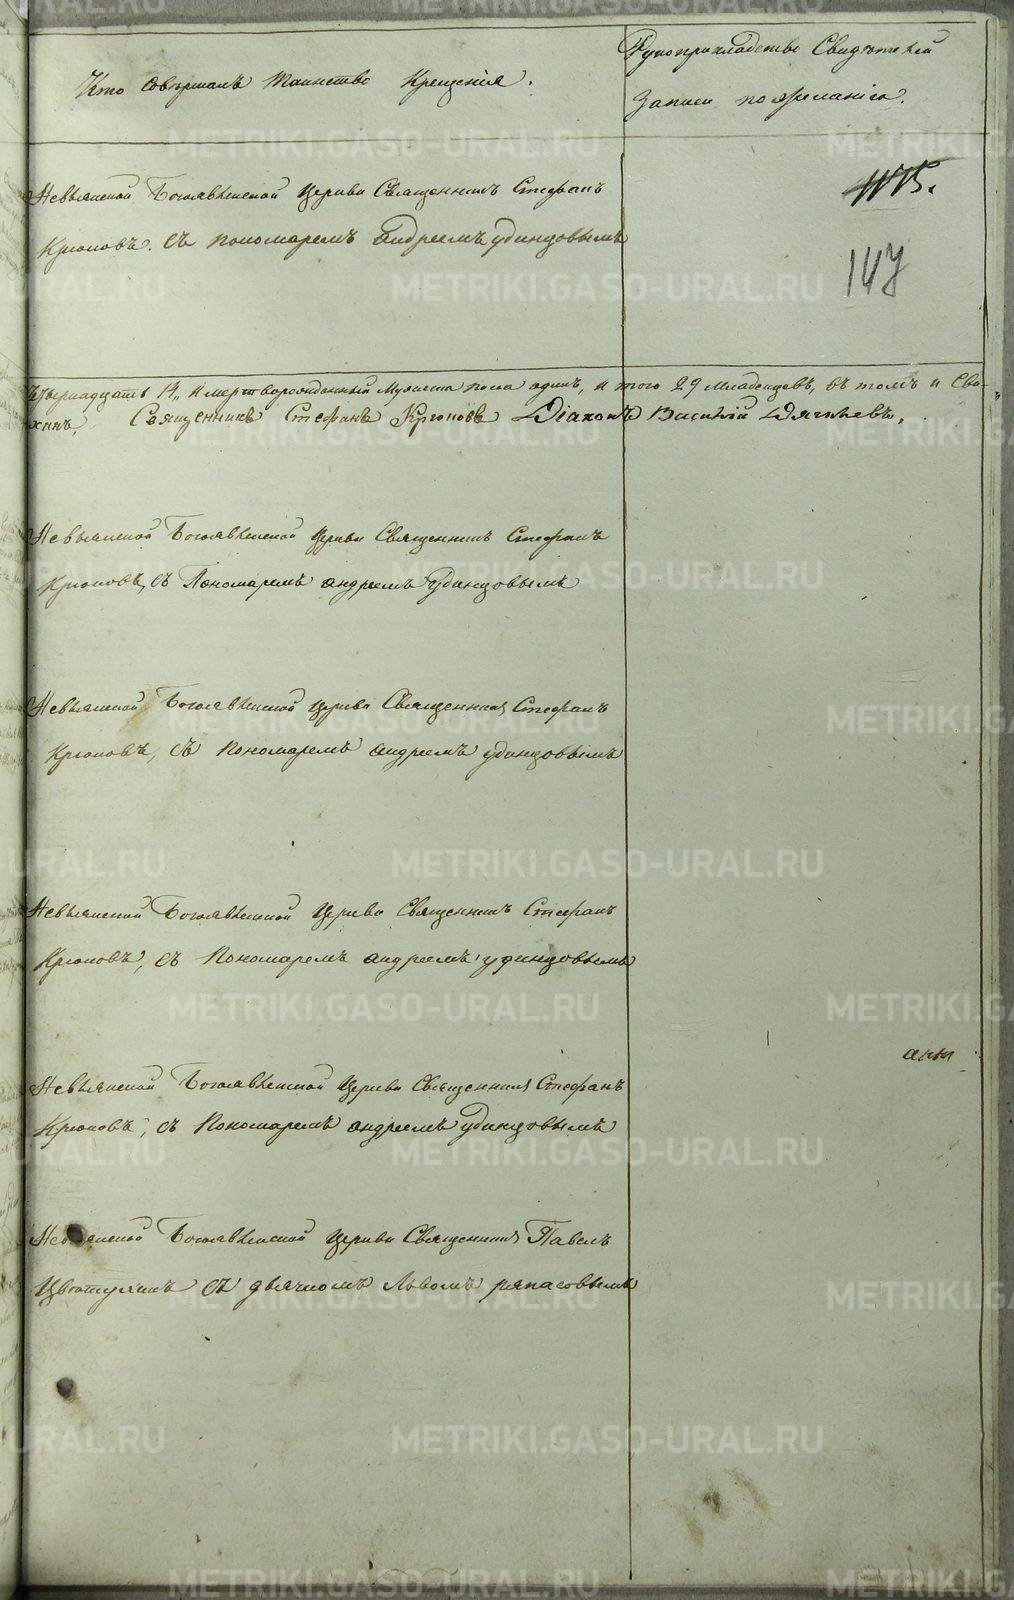 Кто совершалъ таинство Крещенія.
Рукоприкладство Свидѣтелей
Записи по желанію.
Невьянской Богоявленской Церкви Священникъ Стефанъ
Крюковъ. съ пономаремъ Андреемъ Удинцовымъ
147
14, и мертворожденный Мужеска пола одинъ, и того 29 младенцевъ, въ томъ и
Священникъ Стефанъ Крюковъ Діаконъ Василій Дягилевъ.
Невьянской Богоявленской Церкви Священникъ Стефанъ
Крюковъ, съ Пономаремъ Андреемъ Удинцовымъ
Невьянской Богоявленской Церкви Священникъ Стефанъ
Крюковъ, съ Пономаремъ Андреемъ Удинцовымъ
Невьянской Богоявленской Церкви Священникъ Стефанъ
Крюковъ, съ Пономаремъ Андреемъ Удинцовымъ
Невьянской Богоявленской Церкви Священникъ Стефанъ
Крюковъ, съ Пономаремъ Андреемъ Удинцовымъ
Невьянской Богоявленской Церкви Священникъ Павелъ
съ дьячкомъ Львомъ
METRIKI.GASO-URAL.RU